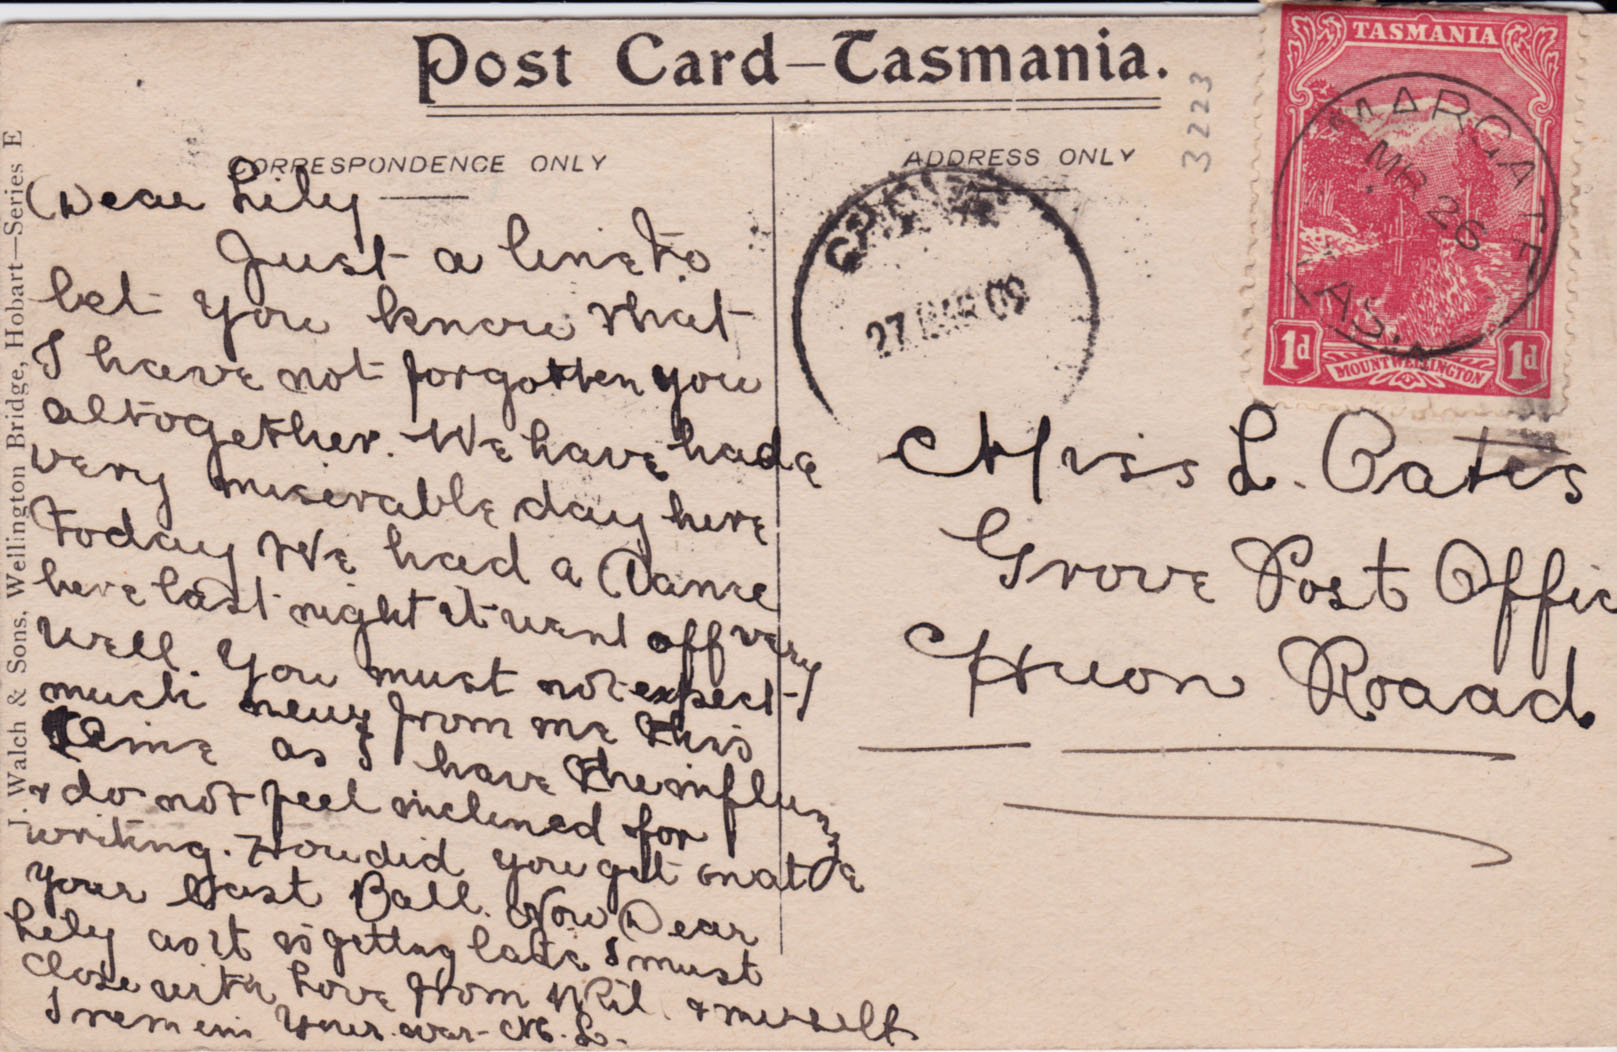 Post Card—Tasmania.
CORRESPONDENCE ONLY
ADDRESS ONLY
3223
TASMANIA
MARGATE
MR 26
TAS'A
1d
MOUNT WELLINGTON
1d
27 MAR 09
J. Walch & Sons, Wellington Bridge, Hobart—Series E
Dear Lily
Just a line to
let you know that
I have not forgotten you
altogether. We have had a
very miserable day here
today We had a Dance
here last night it went off very
well. You must not expect
much news from me this
time as I have the influenza
& do not feel inclined for
writing. How did you get on at
your last Ball. Now Dear
Lily as it is getting late I must
close with Love from Wil. & myself
I remain Your ever M. L.
Miss L. Oates
Grove Post Offic
Huon Roaad